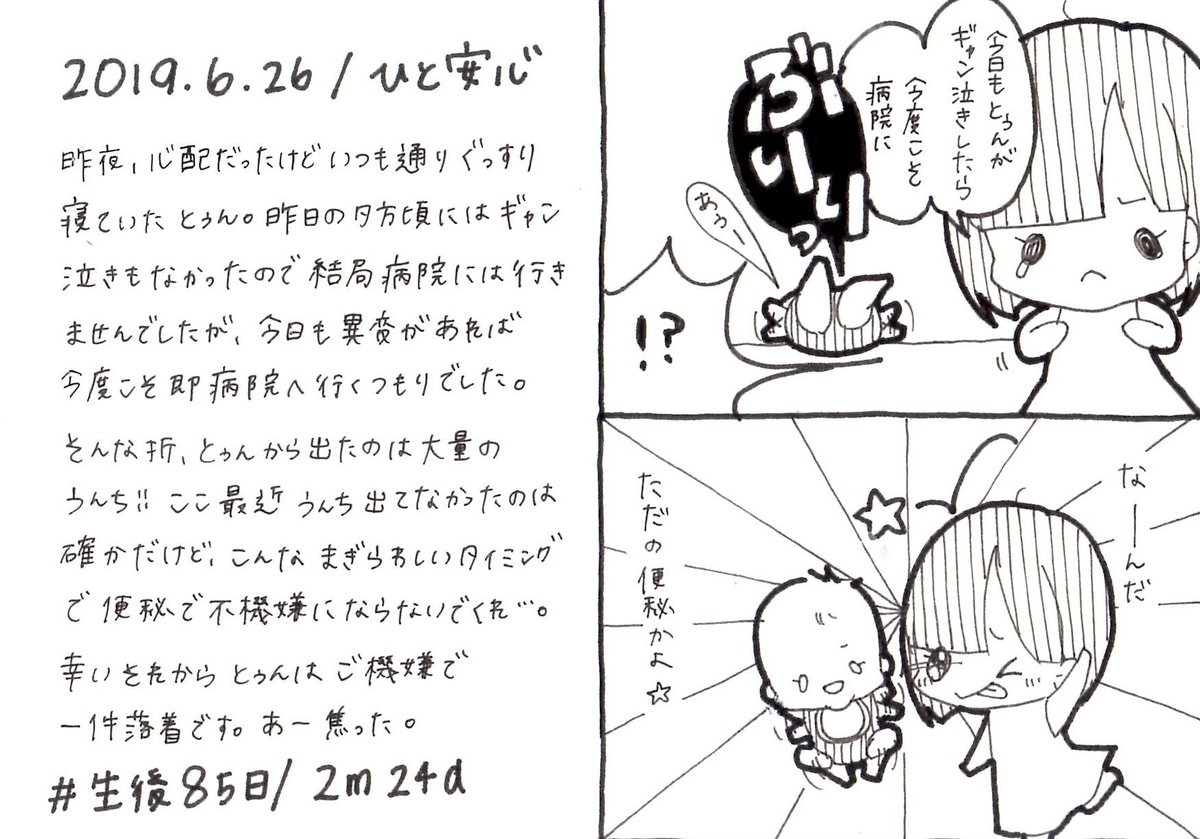 2019.6.26/ひと安心
昨夜、心配だったけどいつも通りぐっすり
寝ていたとぅん。昨日の夕方頃にはギャン
泣きもなかったので結局病院には行き
ませんでしたが、今日も異変があれば
今度こそ即病院へ行くつもりでした。
そんな折、とぅんから出たのは大量の
うんち!!ここ最近うんち出てなかったのは
確かだけど、こんなまぎらわしいタイミング
で便秘で不機嫌にならないでくれ…。
幸いそれからとぅんはご機嫌で
一件落着です。あー焦った。
#生後85日/2m24d
今日もとぅんが
ギャン泣きしたら
今度こそ
病院に
あうー
!?
なーんだ
ただの便秘かよ☆